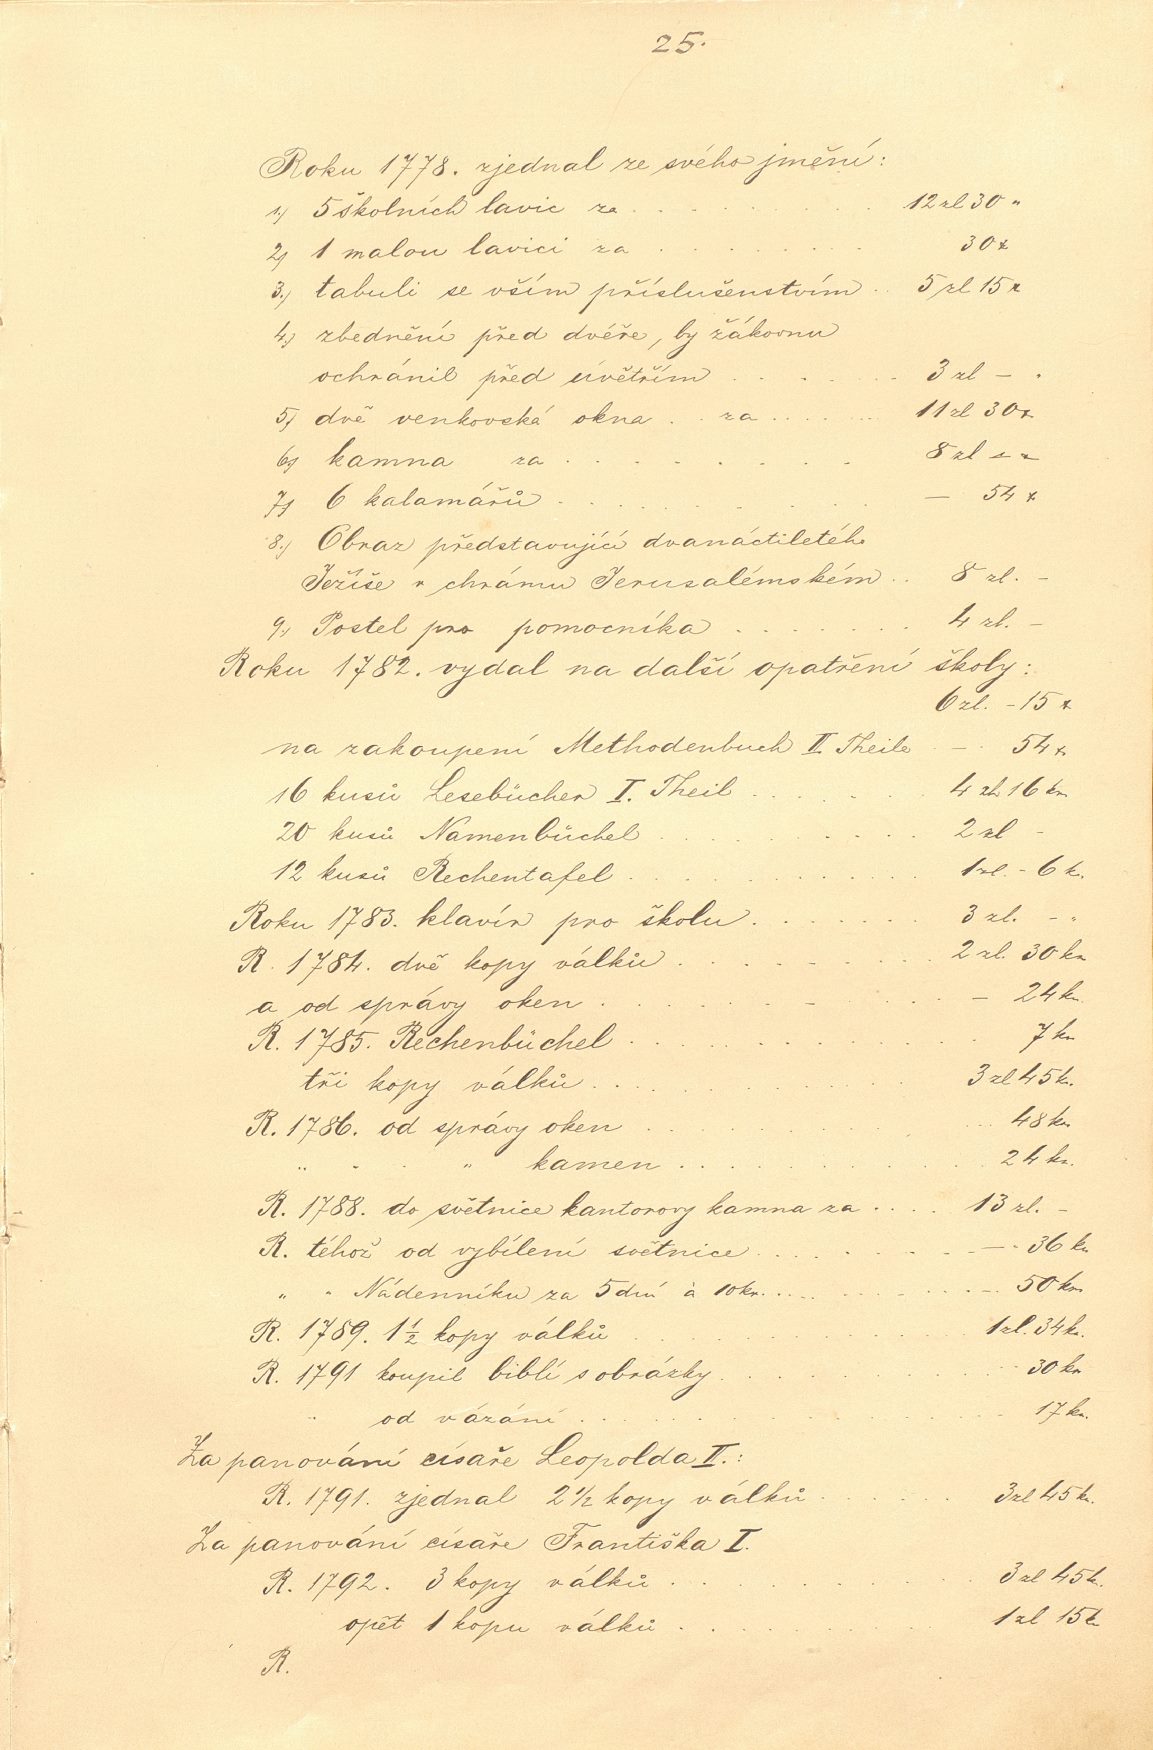 25.
Roku 1778. zjednal ze svého jmění:
1.) 5 školních lavic za . . . . . . . 12 zl 30 "
2.) 1 malou lavici za . . . . . . 30 x
3.) tabuli se vším příslušenstvím . 5 zl 15 x
4.) zbednění před dvéře, by žákovnu
ochránil před úvětřím . . . . . 3 zl — .
5.) dvě venkovská okna . za . . . . . 11 zl 30 x
6.) kamna za . . . . . . . . 8 zl
7.) 6 kalamářů . . . . . . . . — 54 x
8.) Obraz představující dvanáctiletého
Ježíše v chrámu Jerusalémském . . 8 zl. -
9.) Postel pro pomocníka . . . . . . 4 zl. -
Roku 1782. vydal na další opatření školy:
6 zl. - 15 x
na zakoupení Methodenbuch II. Theile - — . 54 x
16 kusů Lesebücher I. Theil . . . . . 4 zl. 16 kr
20 kusů Namenbüchel . . . . . . . 2 zl -
12 kusů Rechentafel . . . . . . . . 1 zl. - 6 k.
Roku 1783. klavír pro školu . . . . . . 3 zl. - "
R. 1784. dvě kopy válků . . . . . . . . 2 zl. 30 kr
a od správy oken . . . . . . . . — 24 kr.
R. 1785. Rechenbüchel . . . . . . . . . 7 kr
tři kopy válků . . . . . . . . . 3 zl 45 k.
R. 1786. od správy oken . . . . . . . . . 48 kr
" " " kamen . . . . . . . . . 24 kr.
R. 1788. do světnice kantorovy kamna za . . . . 13 zl. -
R. téhož od vybílení světnice . . . . . . . — . 36 kr
" " Nádenníku za 5 dní à 10 kr. . . . . . . . — . 50 kr
R. 1789. 1 1/2 kopy válků . . . . . . . . . 1 zl. 34 k.
R. 1791 koupil biblí s obrázky . . . . . . . . 30 kr
" od vázání . . . . . . . . . . 17 kr.
Za panování císaře Leopolda II.:
R. 1791. zjednal 2 1/2 kopy válků . . . . . 3 zl 45 k.
Za panování císaře Františka I.
R. 1792. 3 kopy válků . . . . . . . . 3 zl 45 k.
opět 1 kopu válků . . . . . . . . 1 zl 15 k
R.